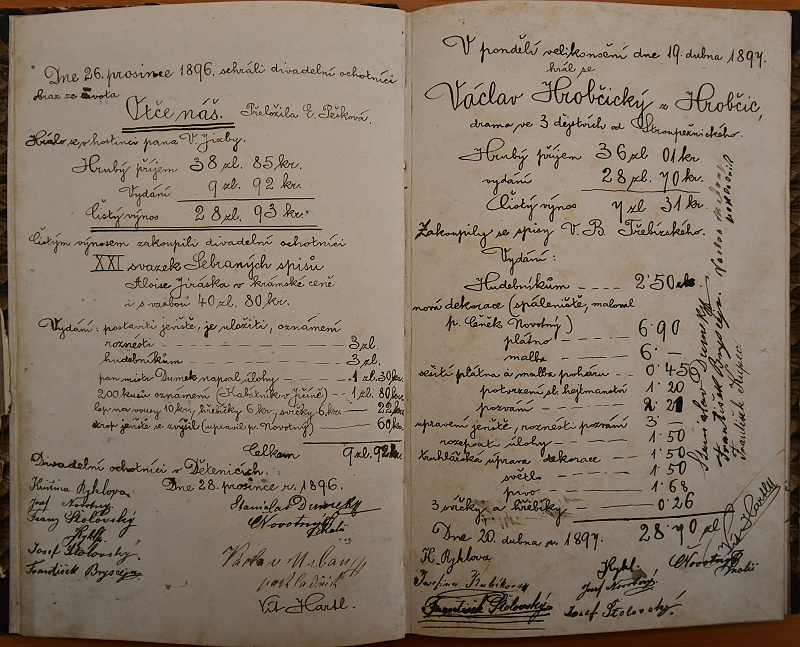 Dne 26. prosince 1896. sehráli divadelní ochotníci
obraz ze života
Otče náš. Přeložila E. Pešková.
Hrálo se v hostinci pana V. Jizby.
Hrubý příjem 38 zl. 85 kr.
Vydání 9 zl. 92 kr.
Čistý výnos 28 zl. 93 kr.
Čistým výnosem zakoupili divadelní ochotníci
XXI svazek Sebraných spisů
Aloise Jiráska v krámské ceně
i s vazbou 40 zl. 80 kr.
Vydání: postaviti jeviště, je uložiti, oznámení
roznésti 3 zl.
hudebníkům 3 zl.
pan mistr Dumek napsal úlohy 1 zl. 30 kr.
200 kusů oznámení (Kabátník v Jičíně) 1 zl. 80 kr.
lep na vousy 10 kr., hřebíčky 6 kr., svíčky 6 kr. 22 kr.
strop jeviště se zvýšil (upravil p. Novotný) 60 kr.
Celkem 9 zl. 92 kr.
Divadelní ochotníci v Dětenicích.
Dne 28. prosince r. 1896.
Kristina Ryklova
Josef Novotný
Franz Stolovský
Rykl.
Josef Stolovský.
František Brysceja.
Stanislav Dumek
Novotný
Václav Urban
pokladník
Vít Hartl.
V pondělí velikonoční dne 19. dubna 1897.
hrál se
Václav Hrobčický z Hrobčic,
drama ve 3 dějstvích od Stroupežnického.
Hrubý příjem 36 zl 01 kr
vydání 28 zl. 70 kr.
Čistý výnos 7 zl 31 kr.
Zakoupily se spisy V. B. Třebízského.
Vydání:
Hudebníkům 2·50
nová dekorace (spáleniště, maloval
p. Čeněk Novotný)
plátno 6·90
malba 6·—
sešití plátna a malba poháru 0·45
potvrzení sl. hejtmanství 1·20
pozvání
upravení jeviště, roznésti pozvání 3·—
rozepsati úlohy 1·50
truhlářská úprava dekorace 1·50
světlo 1·50
pivo 1·68
3 svíčky a hřebíky 0·26
28·70 zl
Dne 20. dubna r. 1897.
K. Ryklova
František Stolovský
Rykl.
Josef Novotný.
Josef Stolovský.
Novotný
Vít Hartl
Stanislav Dumek
František Brysceja.